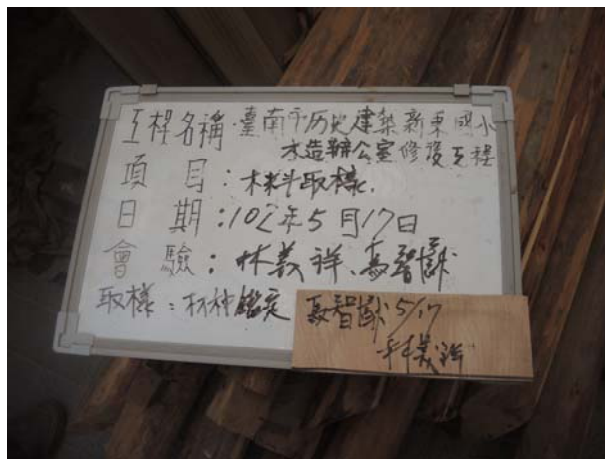 工程名稱：臺南市历史建築新東國小
木造辦公室修復工程
項目：木料取樣.
日期：102年5月17日
會驗：林義祥、
取樣：材种鑑定
5/17
林義祥